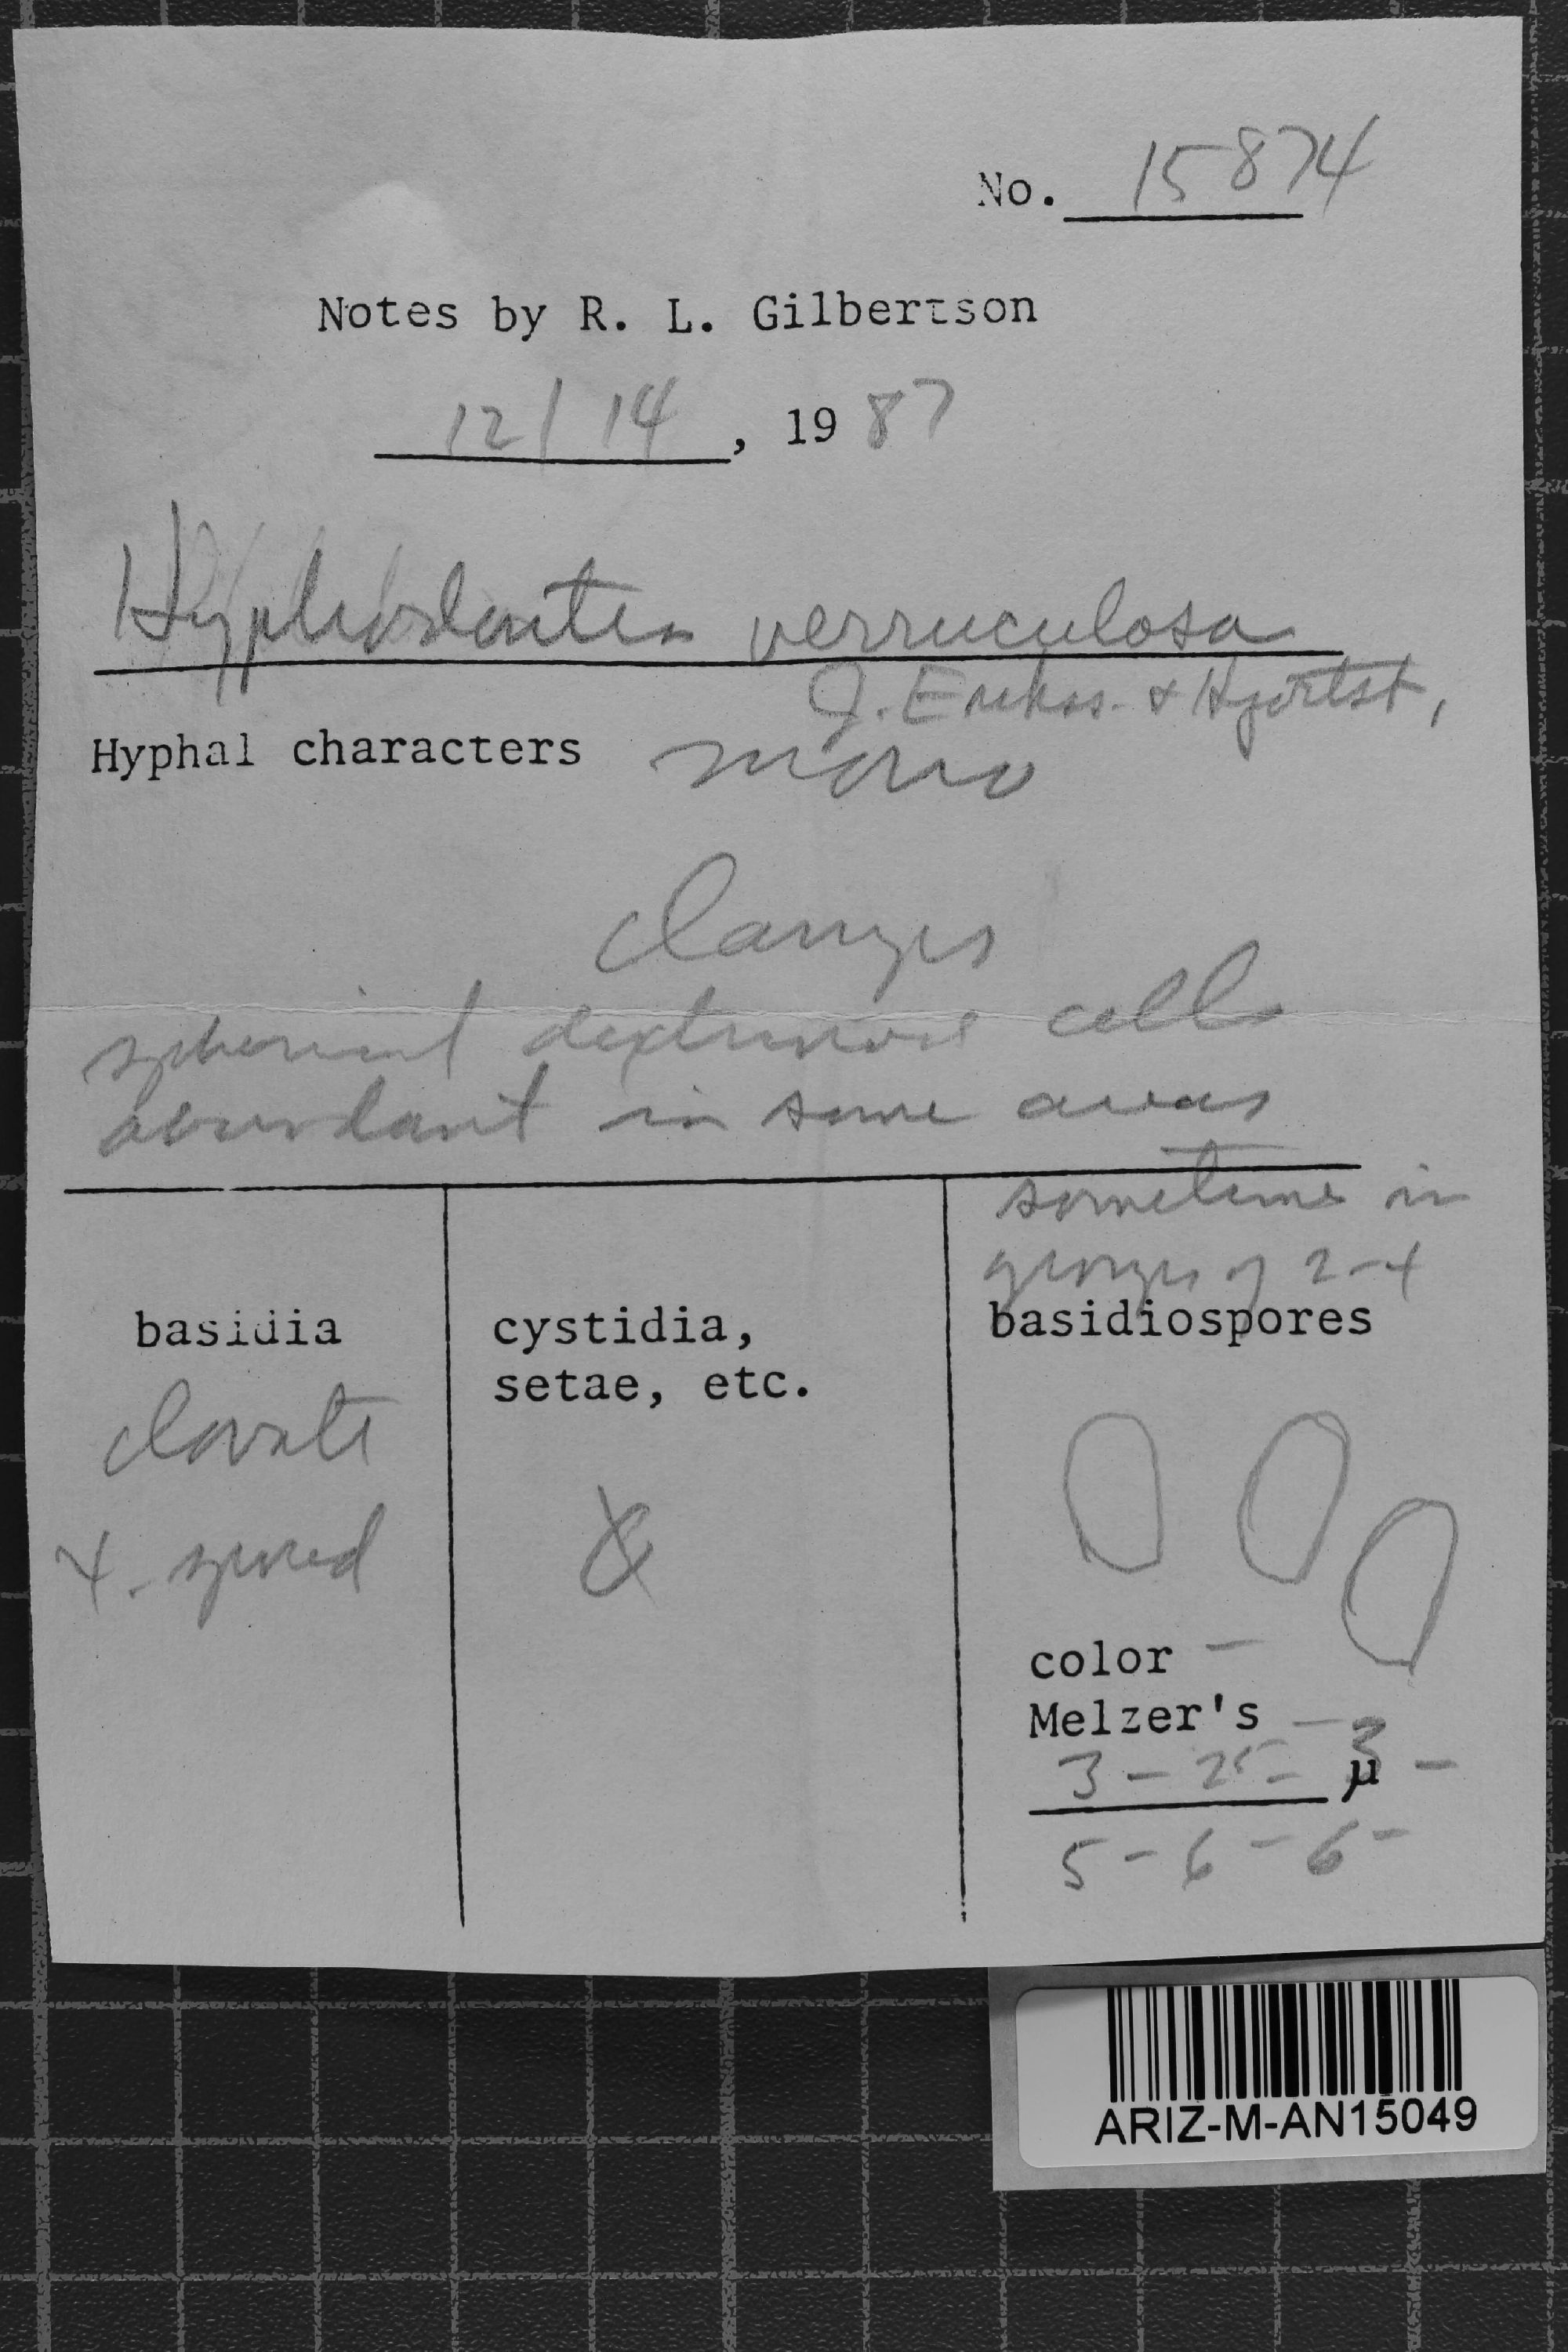 No. 15874
Notes by R. L. Gilbertson
12/14, 1987
Hyphodontia verruculosa
J. Erikss. & Hjortst.
Hyphal characters mono
clamps
spherical dextrinoid cells
abundant in some areas
sometimes in
groups of 2-4
basidia
clavate
4-spored
cystidia,
setae, etc.
basidiospores
color —
Melzer's —
3 - 25 - 3 - µ
5 - 6 - 6 -
ARIZ-M-AN15049